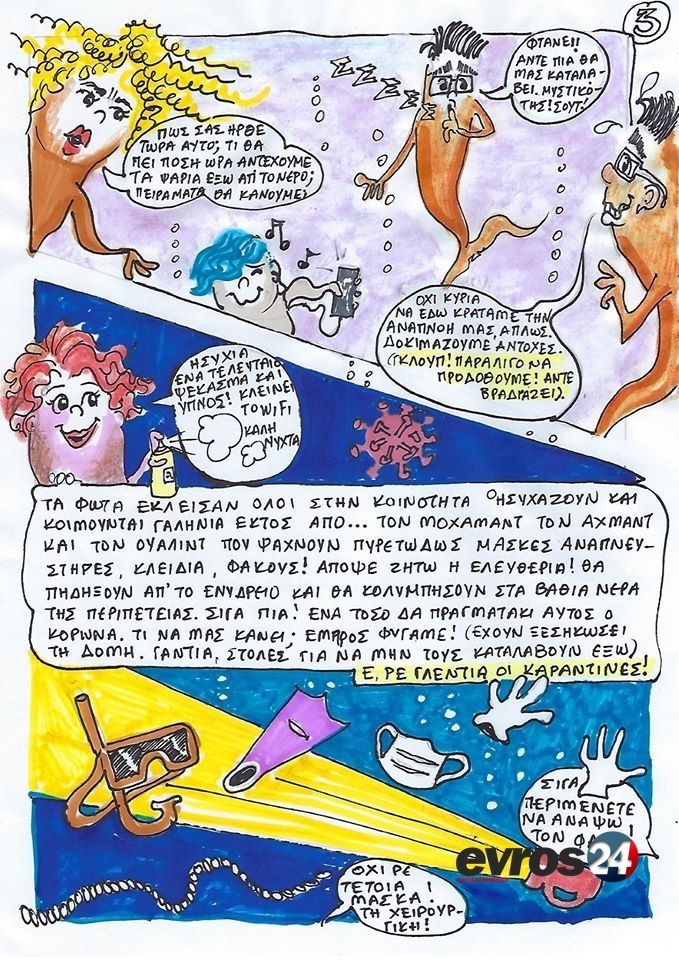 3
ΦΤΑΝΕΙ!
ΑΝΤΕ ΠΙΑ ΘΑ
ΜΑΣ ΚΑΤΑΛΑ-
ΒΕΙ. ΜΥΣΤΙΚΟ-
ΤΗΣ! ΣΟΥΤ!
Z Z Z Z Z Z
ΠΩΣ ΣΑΣ ΗΡΘΕ
ΤΩΡΑ ΑΥΤΟ; ΤΙ ΘΑ
ΠΕΙ ΠΟΣΗ ΩΡΑ ΑΝΤΕΧΟΥΜΕ
ΤΑ ΨΑΡΙΑ ΕΞΩ ΑΠ' ΤΟ ΝΕΡΟ;
ΠΕΙΡΑΜΑΤΑ ΘΑ ΚΑΝΟΥΜΕ;
ΟΧΙ ΚΥΡΙΑ
ΝΑ ΕΔΩ ΚΡΑΤΑΜΕ ΤΗΝ
ΑΝΑΠΝΟΗ ΜΑΣ ΑΠΛΩΣ
ΔΟΚΙΜΑΖΟΥΜΕ ΑΝΤΟΧΕΣ.
(ΓΚΛΟΥΠ! ΠΑΡΑΛΙΓΟ ΝΑ
ΠΡΟΔΟΘΟΥΜΕ! ΑΝΤΕ
ΒΡΑΔΙΑΖΕΙ).
ΗΣΥΧΙΑ
ΕΝΑ ΤΕΛΕΥΤΑΙΟ
ΨΕΚΑΣΜΑ ΚΑΙ
ΥΠΝΟΣ! ΚΛΕΙΝΕΙ
ΤΟ WIFI
ΚΑΛΗ
ΝΥΧΤΑ
ΤΑ ΦΩΤΑ ΕΚΛΕΙΣΑΝ ΟΛΟΙ ΣΤΗΝ ΚΟΙΝΟΤΗΤΑ ΗΣΥΧΑΖΟΥΝ ΚΑΙ
ΚΟΙΜΟΥΝΤΑΙ ΓΑΛΗΝΙΑ ΕΚΤΟΣ ΑΠΟ... ΤΟΝ ΜΟΧΑΜΑΝΤ ΤΟΝ ΑΧΜΑΝΤ
ΚΑΙ ΤΟΝ ΟΥΑΛΙΝΤ ΠΟΥ ΨΑΧΝΟΥΝ ΠΥΡΕΤΩΔΩΣ ΜΑΣΚΕΣ ΑΝΑΠΝΕΥ-
ΣΤΗΡΕΣ, ΚΛΕΙΔΙΑ, ΦΑΚΟΥΣ! ΑΠΟΨΕ ΖΗΤΩ Η ΕΛΕΥΘΕΡΙΑ! ΘΑ
ΠΗΔΗΞΟΥΝ ΑΠ'ΤΟ ΕΝΥΔΡΕΙΟ ΚΑΙ ΘΑ ΚΟΛΥΜΠΗΣΟΥΝ ΣΤΑ ΒΑΘΙΑ ΝΕΡΑ
ΤΗΣ ΠΕΡΙΠΕΤΕΙΑΣ. ΣΙΓΑ ΠΙΑ! ΕΝΑ ΤΟΣΟ ΔΑ ΠΡΑΓΜΑΤΑΚΙ ΑΥΤΟΣ Ο
ΚΟΡΩΝΑ. ΤΙ ΝΑ ΜΑΣ ΚΑΝΕΙ; ΕΜΠΡΟΣ ΦΥΓΑΜΕ! (ΕΧΟΥΝ ΞΕΣΗΚΩΣΕΙ
ΤΗ ΔΟΜΗ. ΓΑΝΤΙΑ, ΣΤΟΛΕΣ ΓΙΑ ΝΑ ΜΗΝ ΤΟΥΣ ΚΑΤΑΛΑΒΟΥΝ ΕΞΩ)
Ε, ΡΕ ΓΛΕΝΤΙΑ ΟΙ ΚΑΡΑΝΤΙΝΕΣ!
ΣΙΓΑ
ΠΕΡΙΜΕΝΕΤΕ
ΝΑ ΑΝΑΨΩ
ΤΟΝ
evros24
ΟΧΙ ΡΕ
ΤΕΤΟΙΑ
ΜΑΣΚΑ.
ΤΗ ΧΕΙΡΟΥΡ-
ΓΙΚΗ!